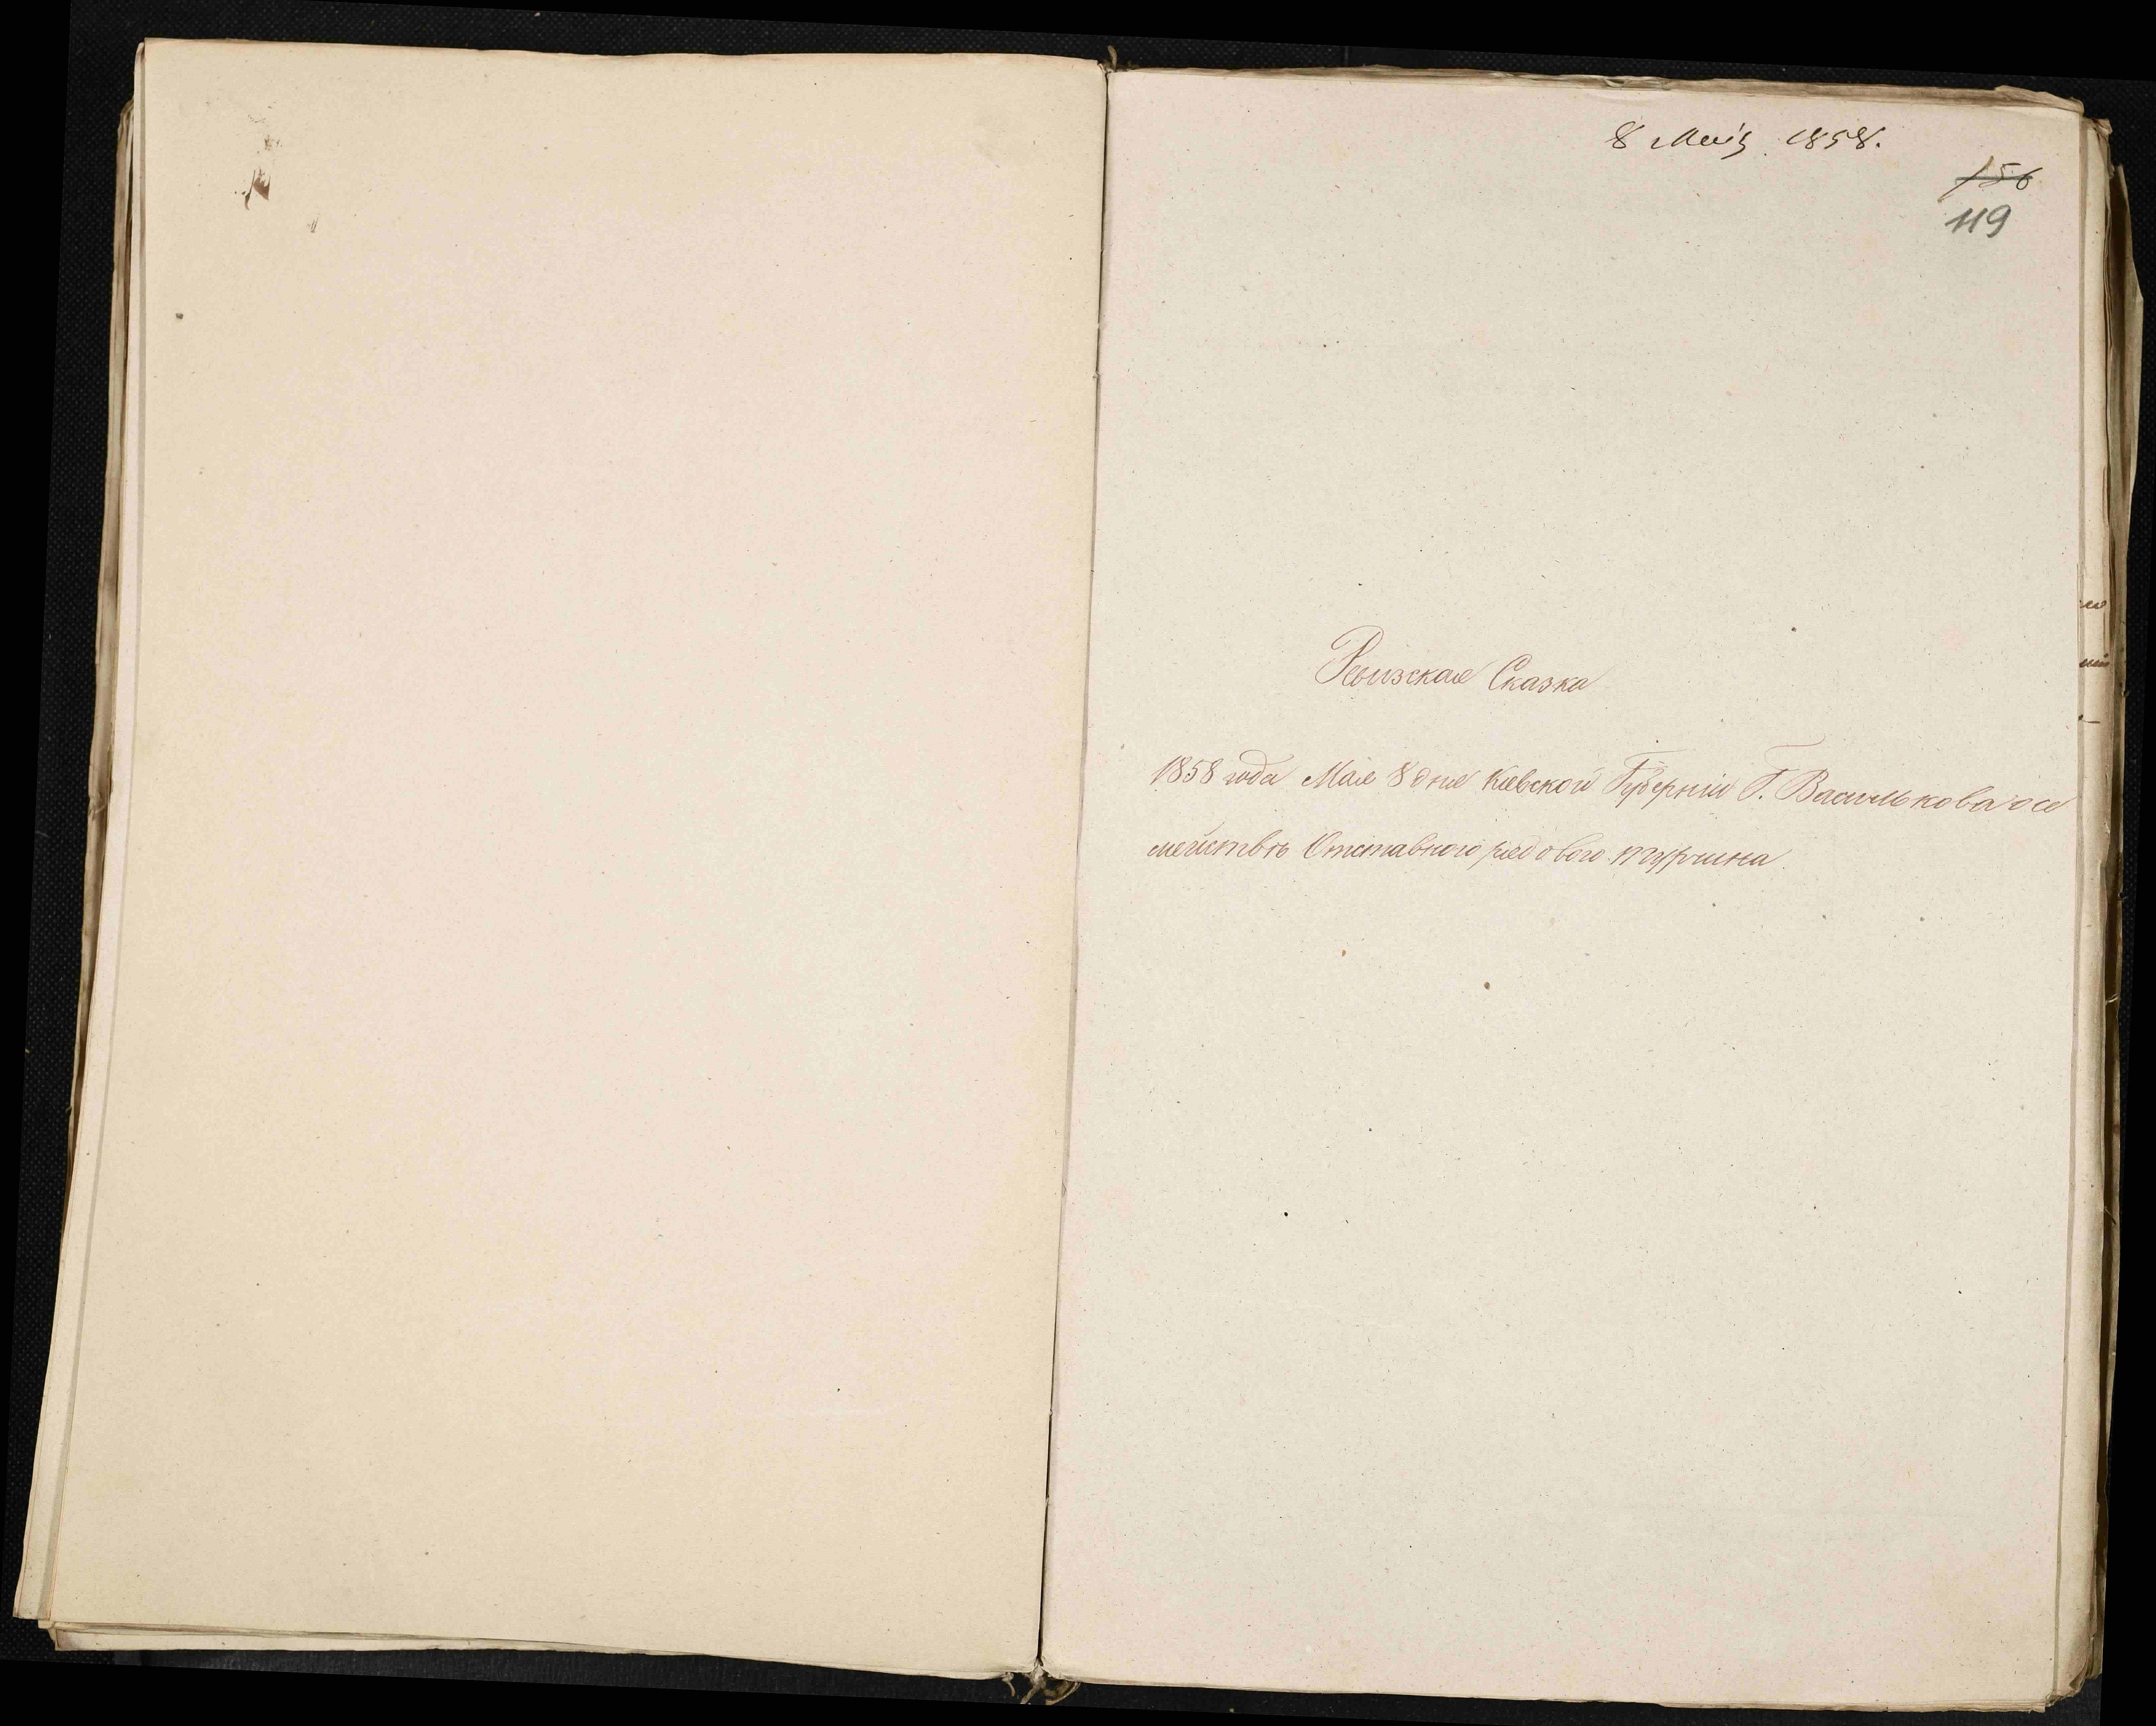 8 Маія 1858.
156
119
Ревизская Сказка
1858 года Мая 8 дня Кіевской Губерніи Г. Василькова о се
мействѣ Отставного рядового